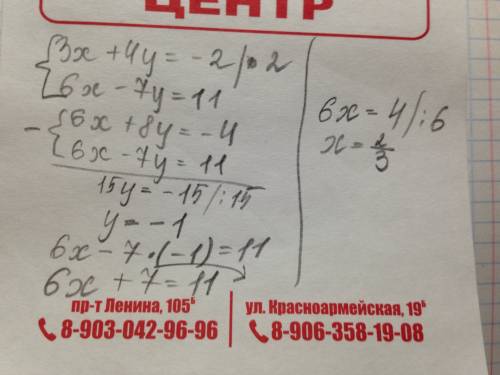 ЦЕНТР
3x + 4y = -2 /·2
6x - 7y = 11
- 6x + 8y = -4
6x - 7y = 11
15y = -15 /:15
y = -1
6x - 7·(-1) = 11
6x + 7 = 11
6x = 4 /:6
x = 2/3
пр-т Ленина, 105Б
8-903-042-96-96
ул. Красноармейская, 19Б
8-906-358-19-08